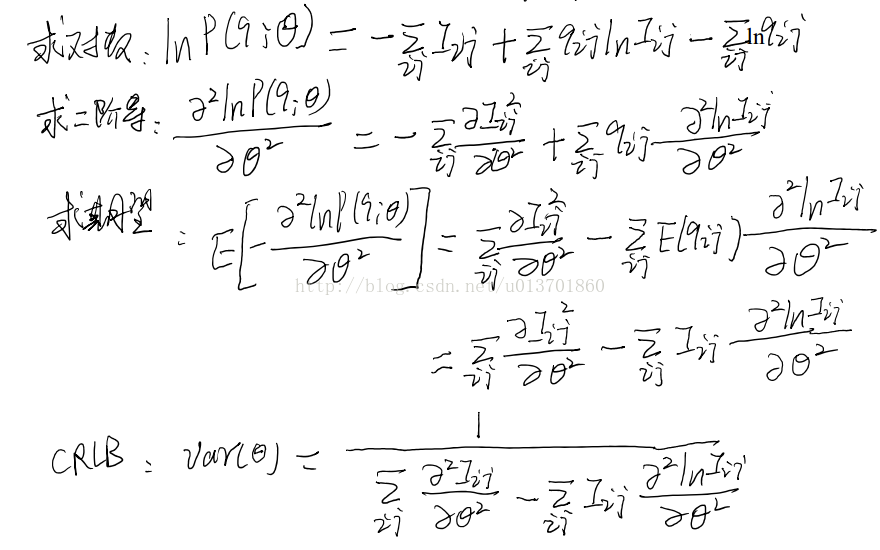 求对数: ln P(q;θ) = -∑_{ij} I_{ij} + ∑_{ij} q_{ij} ln I_{ij} - ∑_{ij} ln q_{ij}
求二阶导: ∂²ln P(q;θ) / ∂θ² = -∑_{ij} ∂I_{ij}² / ∂θ² + ∑_{ij} q_{ij} ∂²ln I_{ij} / ∂θ²
求期望: E[-∂²ln P(q;θ) / ∂θ²] = ∑_{ij} ∂I_{ij}² / ∂θ² - ∑_{ij} E(q_{ij}) ∂²ln I_{ij} / ∂θ²
http://blog.csdn.net/u013701860
= ∑_{ij} ∂I_{ij}² / ∂θ² - ∑_{ij} I_{ij} ∂²ln I_{ij} / ∂θ²
CRLB: Var(θ) = 1 / (∑_{ij} ∂²I_{ij} / ∂θ² - ∑_{ij} I_{ij} ∂²ln I_{ij} / ∂θ²)